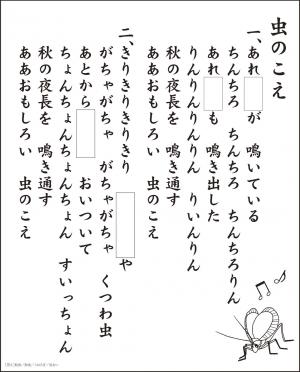 虫のこえ
一、あれ　が　鳴いている
ちんちろ　ちんちろ　ちんちろりん
あれ　も　鳴き出した
りんりんりんりん　りいんりん
秋の夜長を　鳴き通す
ああおもしろい　虫のこえ
二、きりきりきりきり　　や
がちゃがちゃ　がちゃがちゃ　くつわ虫
あとから　　おいついて
ちょんちょんちょんちょん　すいっちょん
秋の夜長を　鳴き通す
ああおもしろい　虫のこえ